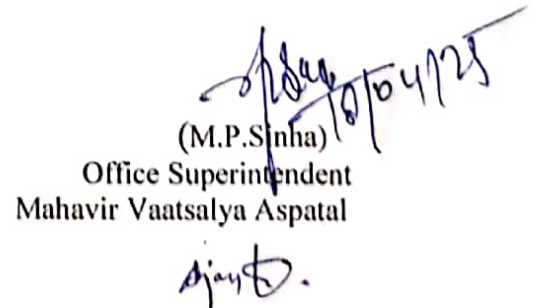 18/04/25
(M.P.Sinha)
Office Superintendent
Mahavir Vaatsalya Aspatal